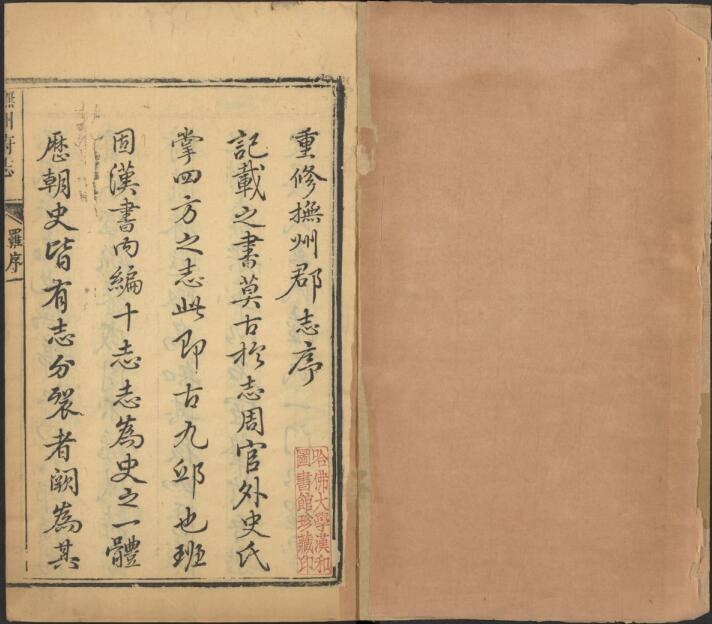 重修撫州郡志序
記載之書莫古於志周官外史氏
掌四方之志此即古九邱也班
固漢書內編十志志為史之一體
歷朝史皆有志分裂者闕為其
撫州府志
羅序一
哈佛大學漢和
圖書館珍藏印